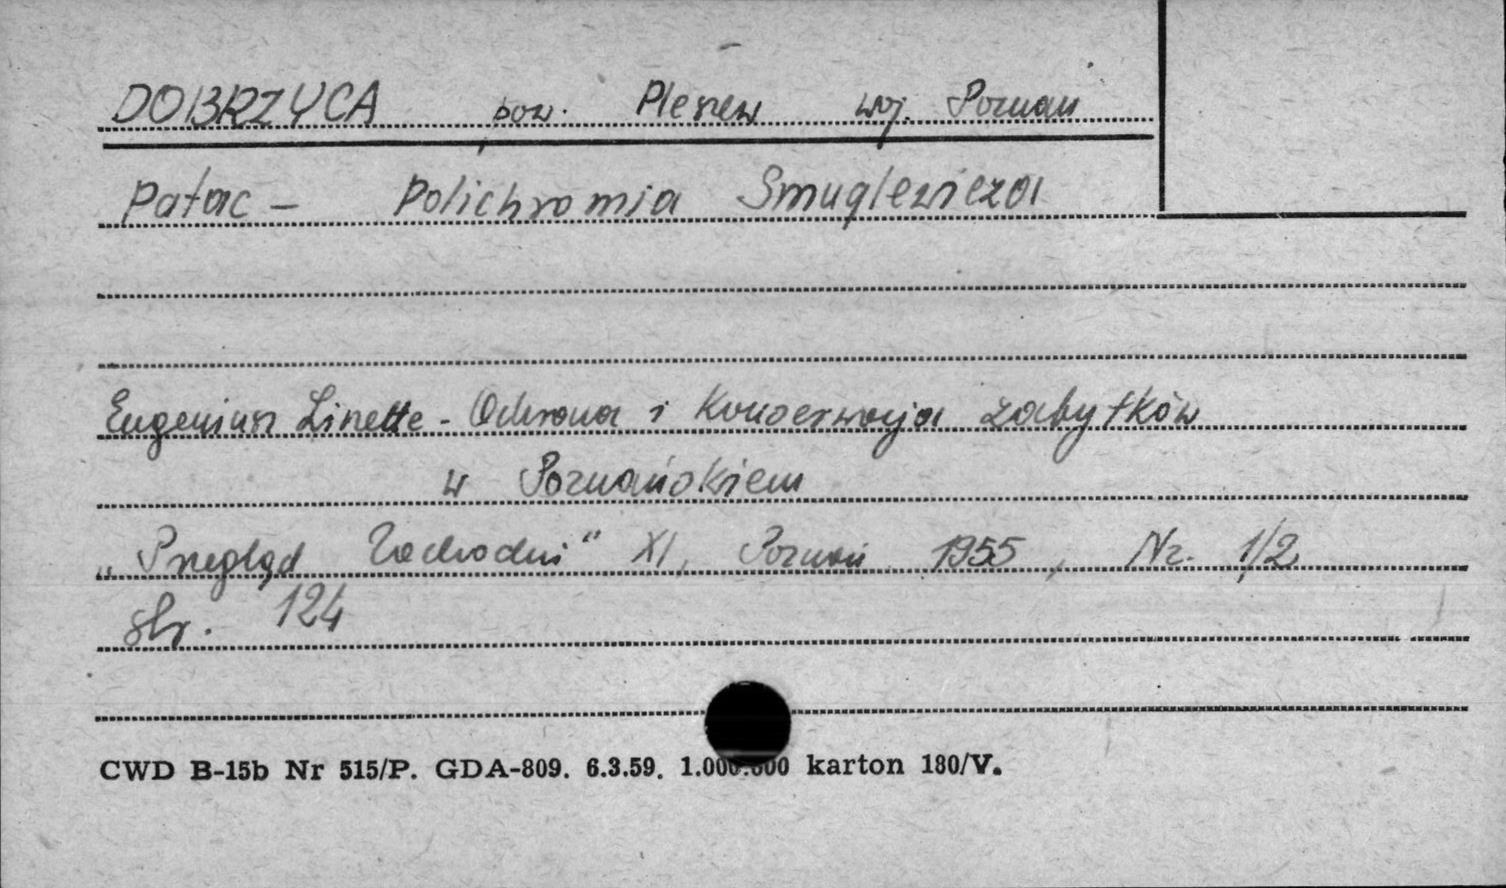 DOBRZYCA pow. Pleszew woj. Poznań
Pałac - Polichromia Smuglewicza
Eugeniusz Linette - Ochrona i Konserwacja zabytków
w Poznańskiem
„Przegląd Zachodni" XI, Poznań 1955, Nr. 1/2
str. 124
CWD B-15b Nr 515/P. GDA-809. 6.3.59. 1.000.000 karton 180/V.